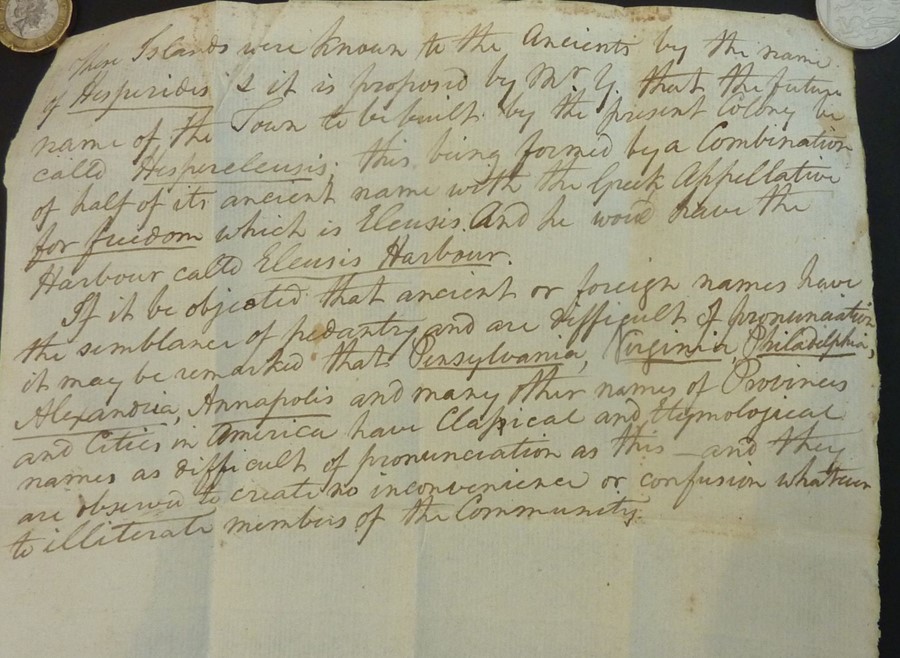 These Islands were known to the Ancients by the name
of Hesperides & it is proposed by Mr Y. that the future
name of the Town to be built by the present Colony be
calld Hespereleusis; this being formed by a Combination
of half of its ancient name with the Greek Appellative
for freedom which is Eleusis. And he woud have the
Harbour calld Eleusis Harbour.
If it be objected that ancient or foreign names have
the semblance of pedantry, and are difficult of pronunciation,
it may be remarked that Pensylvania, Virginia, Philadelphia,
Alexandria, Annapolis and many other names of Provinces
and Cities in America have Classical and Etymological
names as difficult of pronunciation as this — and they
are observed to create no inconvenience or confusion whatever
to illiterate members of the Community.